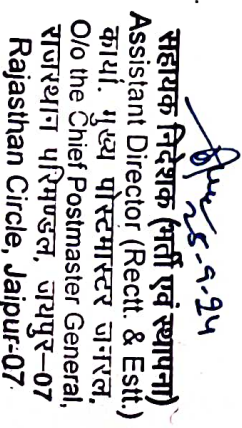 25-9-24
सहायक निदेशक (भर्ती एवं स्थापना)
Assistant Director (Rectt. & Estt.)
कार्या. मुख्य पोस्टमास्टर जनरल,
O/o the Chief Postmaster General,
राजस्थान परिमण्डल, जयपुर-07
Rajasthan Circle, Jaipur-07